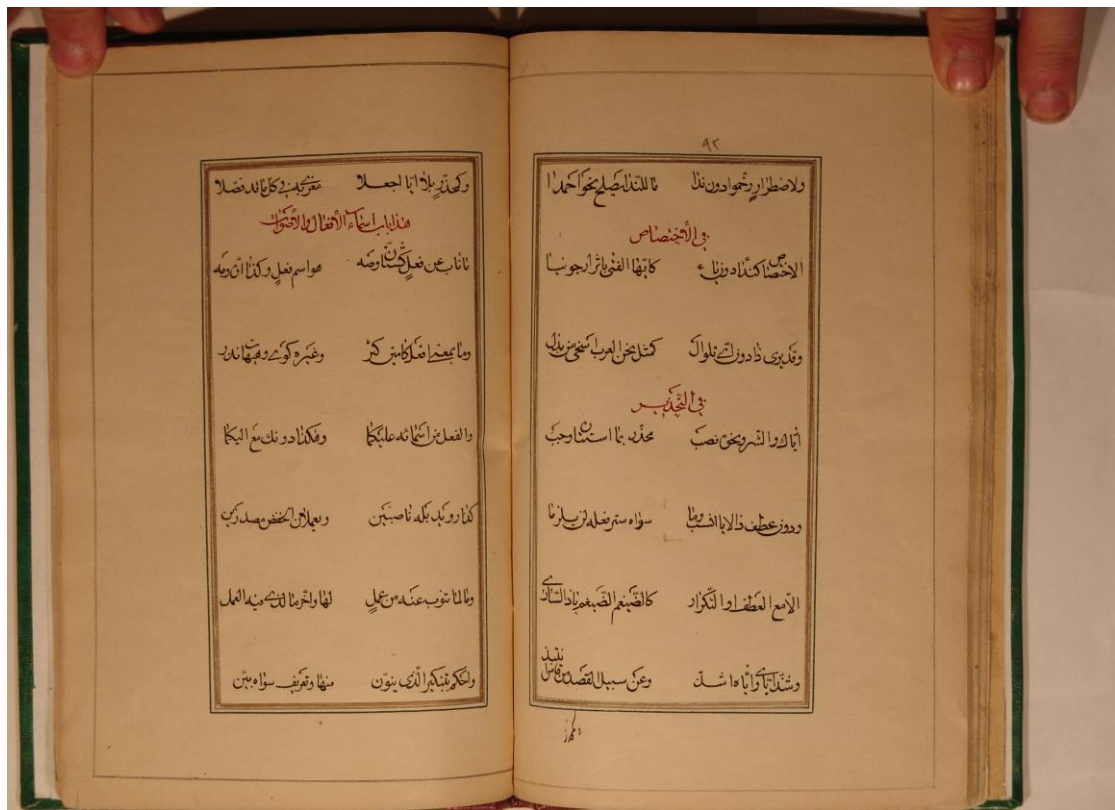 ٩٢
ولاضطرار رخموا دون ندا ما للندا يصلح نحو احمدا
في الأختصاص
الاختصاص كنداء دون ياء كايها الفتى باثر ارجونيا
وقد يرى ذا دون اي تلو ال كمثل نحن العرب اسخى من بذل
في التحذير
اياك والشر ونحوه نصب محذر بما استتاره وجب
ودون عطف ذا لايا انسب وما سواه ستر فعله لن يلزما
الا مع العطف او التكرار كالضيغم الضيغم ياذا الساري
وشذ اياي واياه اشذ وعن سبيل القصد من قاس انتبذ
وكمحذر
وكمحذر بلا ايا اجعلا مغرى به في كل ما قد فصلا
هذا باب اسماء الأفعال والأصوات
ما ناب عن فعل كشتان وصه هو اسم فعل وكذا اوه ومه
وما بمعنى افعل كامين كثر وغيره كوي وهيهات نذر
والفعل من اسمائه عليكما وهكذا دونك مع اليكما
كذا رويد بله ناصبين ويعملان الخفض مصدرين
وما لما تنوب عنه من عمل لها واخر ما لذي فيه العمل
واحكم بتنكير الذي ينون منها وتعريف سواه بين